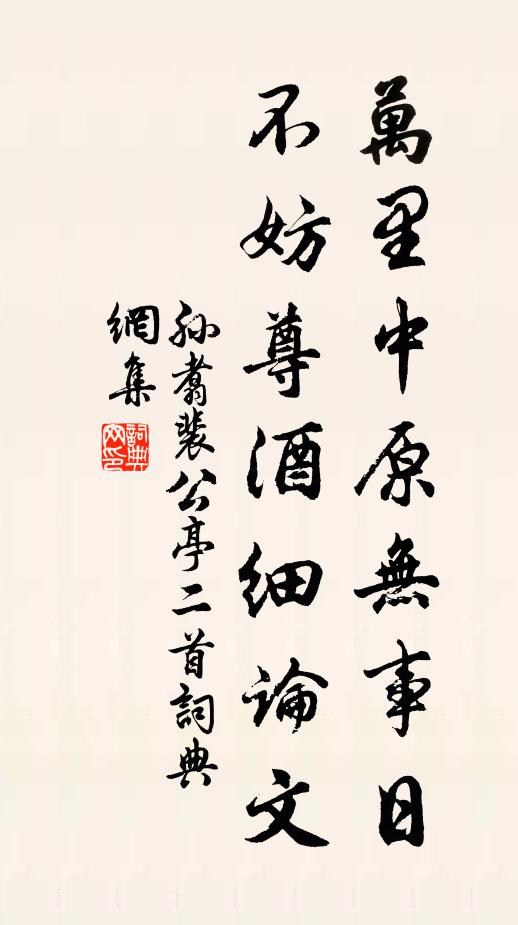 萬里中原無事日
不妨尊酒細論文
孫翥裴公亭二首詞典
網集
詞典
网印